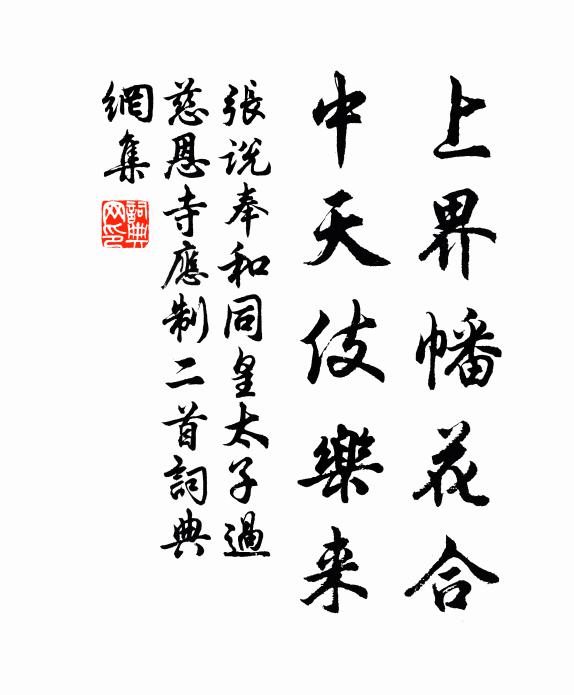 上界幡花合
中天伎樂来
張說奉和同皇太子過
慈恩寺應制二首詞典
網集
詞典
网印